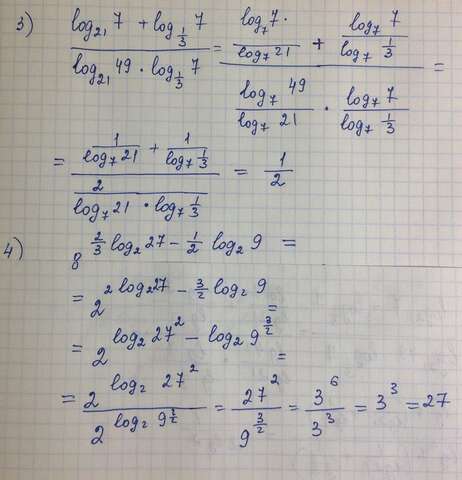 3) (log₂₁ 7 + log_{1/3} 7) / (log₂₁ 49 · log_{1/3} 7) = (log₇ 7 / log₇ 21 + log₇ 7 / log₇ 1/3) / (log₇ 49 / log₇ 21 · log₇ 7 / log₇ 1/3) =
= (1 / log₇ 21 + 1 / log₇ 1/3) / (2 / (log₇ 21 · log₇ 1/3)) = 1/2
4) 8^{2/3 log₂ 27 − 1/2 log₂ 9} =
= 2^{2 log₂ 27 − 3/2 log₂ 9} =
= 2^{log₂ 27² − log₂ 9^{3/2}} =
= 2^{log₂ 27²} / 2^{log₂ 9^{3/2}} = 27² / 9^{3/2} = 3⁶ / 3³ = 3³ = 27